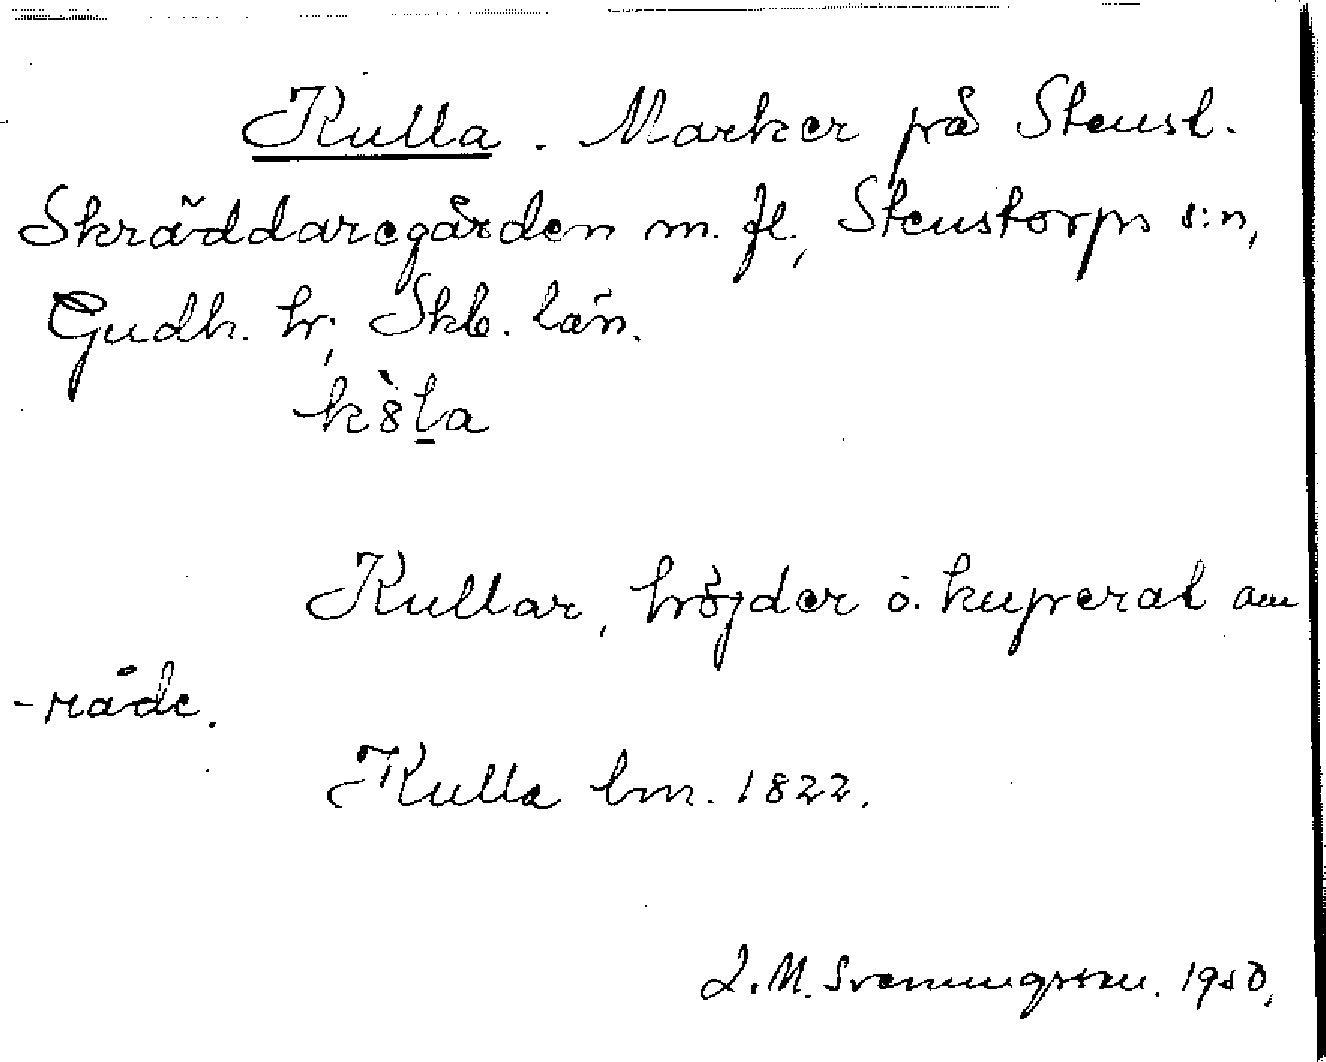 Kulla. Marker på Stenst.
Skräddaregården m. fl., Stenstorps s:n,
Gudh. hr, Skb. län.
k8̀l̲a
Kullar, höjder o. kuperat om
-råde.
Kulla lm. 1822.
J. M. Svenningsson. 1950.